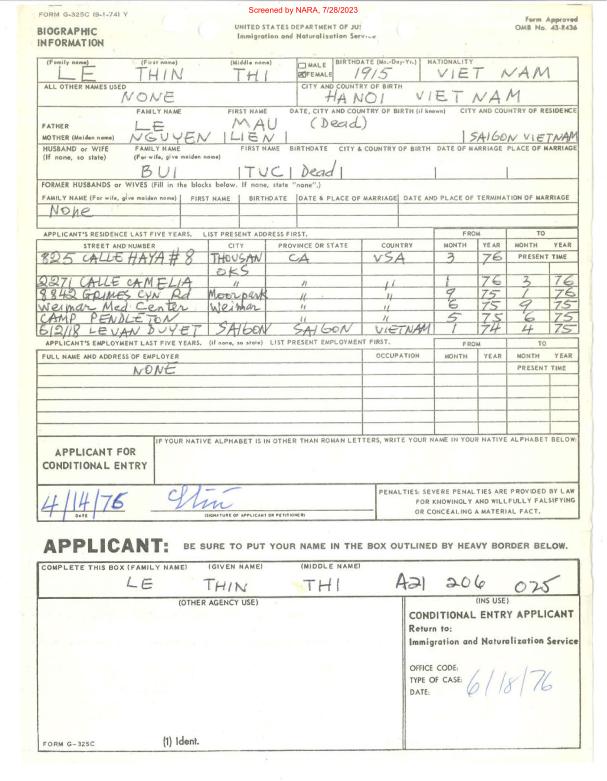 Screened by NARA, 7/28/2023
FORM G-325C (9-1-74) Y
BIOGRAPHIC INFORMATION
UNITED STATES DEPARTMENT OF JUS
Immigration and Naturalization Service
Form Approved
OMB No. 43-R436
(Family name) (First name) (Middle name) MALE FEMALE BIRTHDATE (Mo.-Day-Yr.) NATIONALITY
LE THIN THI 1915 VIET NAM
ALL OTHER NAMES USED CITY AND COUNTRY OF BIRTH
NONE HANOI VIET NAM
FAMILY NAME FIRST NAME DATE, CITY AND COUNTRY OF BIRTH (if known) CITY AND COUNTRY OF RESIDENCE
FATHER LE MAU (Dead)
MOTHER (Maiden name) NGUYEN LIEN SAIGON VIETNAM
HUSBAND or WIFE FAMILY NAME FIRST NAME BIRTHDATE CITY & COUNTRY OF BIRTH DATE OF MARRIAGE PLACE OF MARRIAGE
(If none, so state) (For wife, give maiden name)
BUI TUC Dead
FORMER HUSBANDS or WIVES (Fill in the blocks below. If none, state "none".)
FAMILY NAME (For wife, give maiden name) FIRST NAME BIRTHDATE DATE & PLACE OF MARRIAGE DATE AND PLACE OF TERMINATION OF MARRIAGE
None
APPLICANT'S RESIDENCE LAST FIVE YEARS. LIST PRESENT ADDRESS FIRST. FROM TO
STREET AND NUMBER CITY PROVINCE OR STATE COUNTRY MONTH YEAR MONTH YEAR
825 CALLE HAYA #8 THOUSAN OKS CA USA 3 76 PRESENT TIME
2271 CALLE CAMELIA " " " 1 76 3 76
8842 GRIMES CYN Rd Moorpark " " 9 75 1 76
Weimar Med Center Weimar " " 6 75 9 75
CAMP PENDLETON " " 5 75 6 75
612/18 LEVAN DUYET SAIGON SAIGON VIETNAM 1 74 4 75
APPLICANT'S EMPLOYMENT LAST FIVE YEARS. (if none, so state) LIST PRESENT EMPLOYMENT FIRST. FROM TO
FULL NAME AND ADDRESS OF EMPLOYER OCCUPATION MONTH YEAR MONTH YEAR
NONE PRESENT TIME
APPLICANT FOR CONDITIONAL ENTRY
IF YOUR NATIVE ALPHABET IS IN OTHER THAN ROMAN LETTERS, WRITE YOUR NAME IN YOUR NATIVE ALPHABET BELOW:
4/14/76
DATE
(SIGNATURE OF APPLICANT OR PETITIONER)
PENALTIES: SEVERE PENALTIES ARE PROVIDED BY LAW
FOR KNOWINGLY AND WILLFULLY FALSIFYING
OR CONCEALING A MATERIAL FACT.
APPLICANT: BE SURE TO PUT YOUR NAME IN THE BOX OUTLINED BY HEAVY BORDER BELOW.
COMPLETE THIS BOX (FAMILY NAME) (GIVEN NAME) (MIDDLE NAME)
LE THIN THI A21 206 025
(OTHER AGENCY USE) (INS USE)
CONDITIONAL ENTRY APPLICANT
Return to:
Immigration and Naturalization Service
OFFICE CODE:
TYPE OF CASE:
DATE: 6/18/76
FORM G-325C (1) Ident.